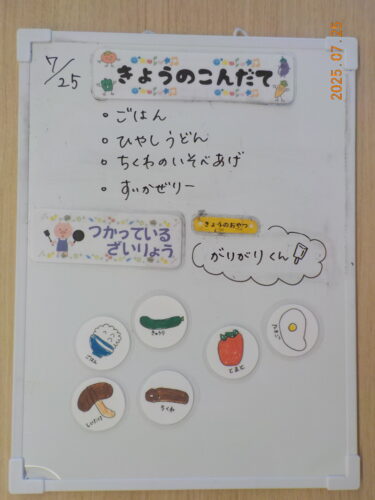 2025.07.25
7/25
きょうのこんだて
・ごはん
・ひやしうどん
・ちくわのいそべあげ
・すいかぜりー
つかっている
ざいりょう
きょうのおやつ
がりがりくん
ごはん
きゅうり
とまと
たまご
しいたけ
ちくわ